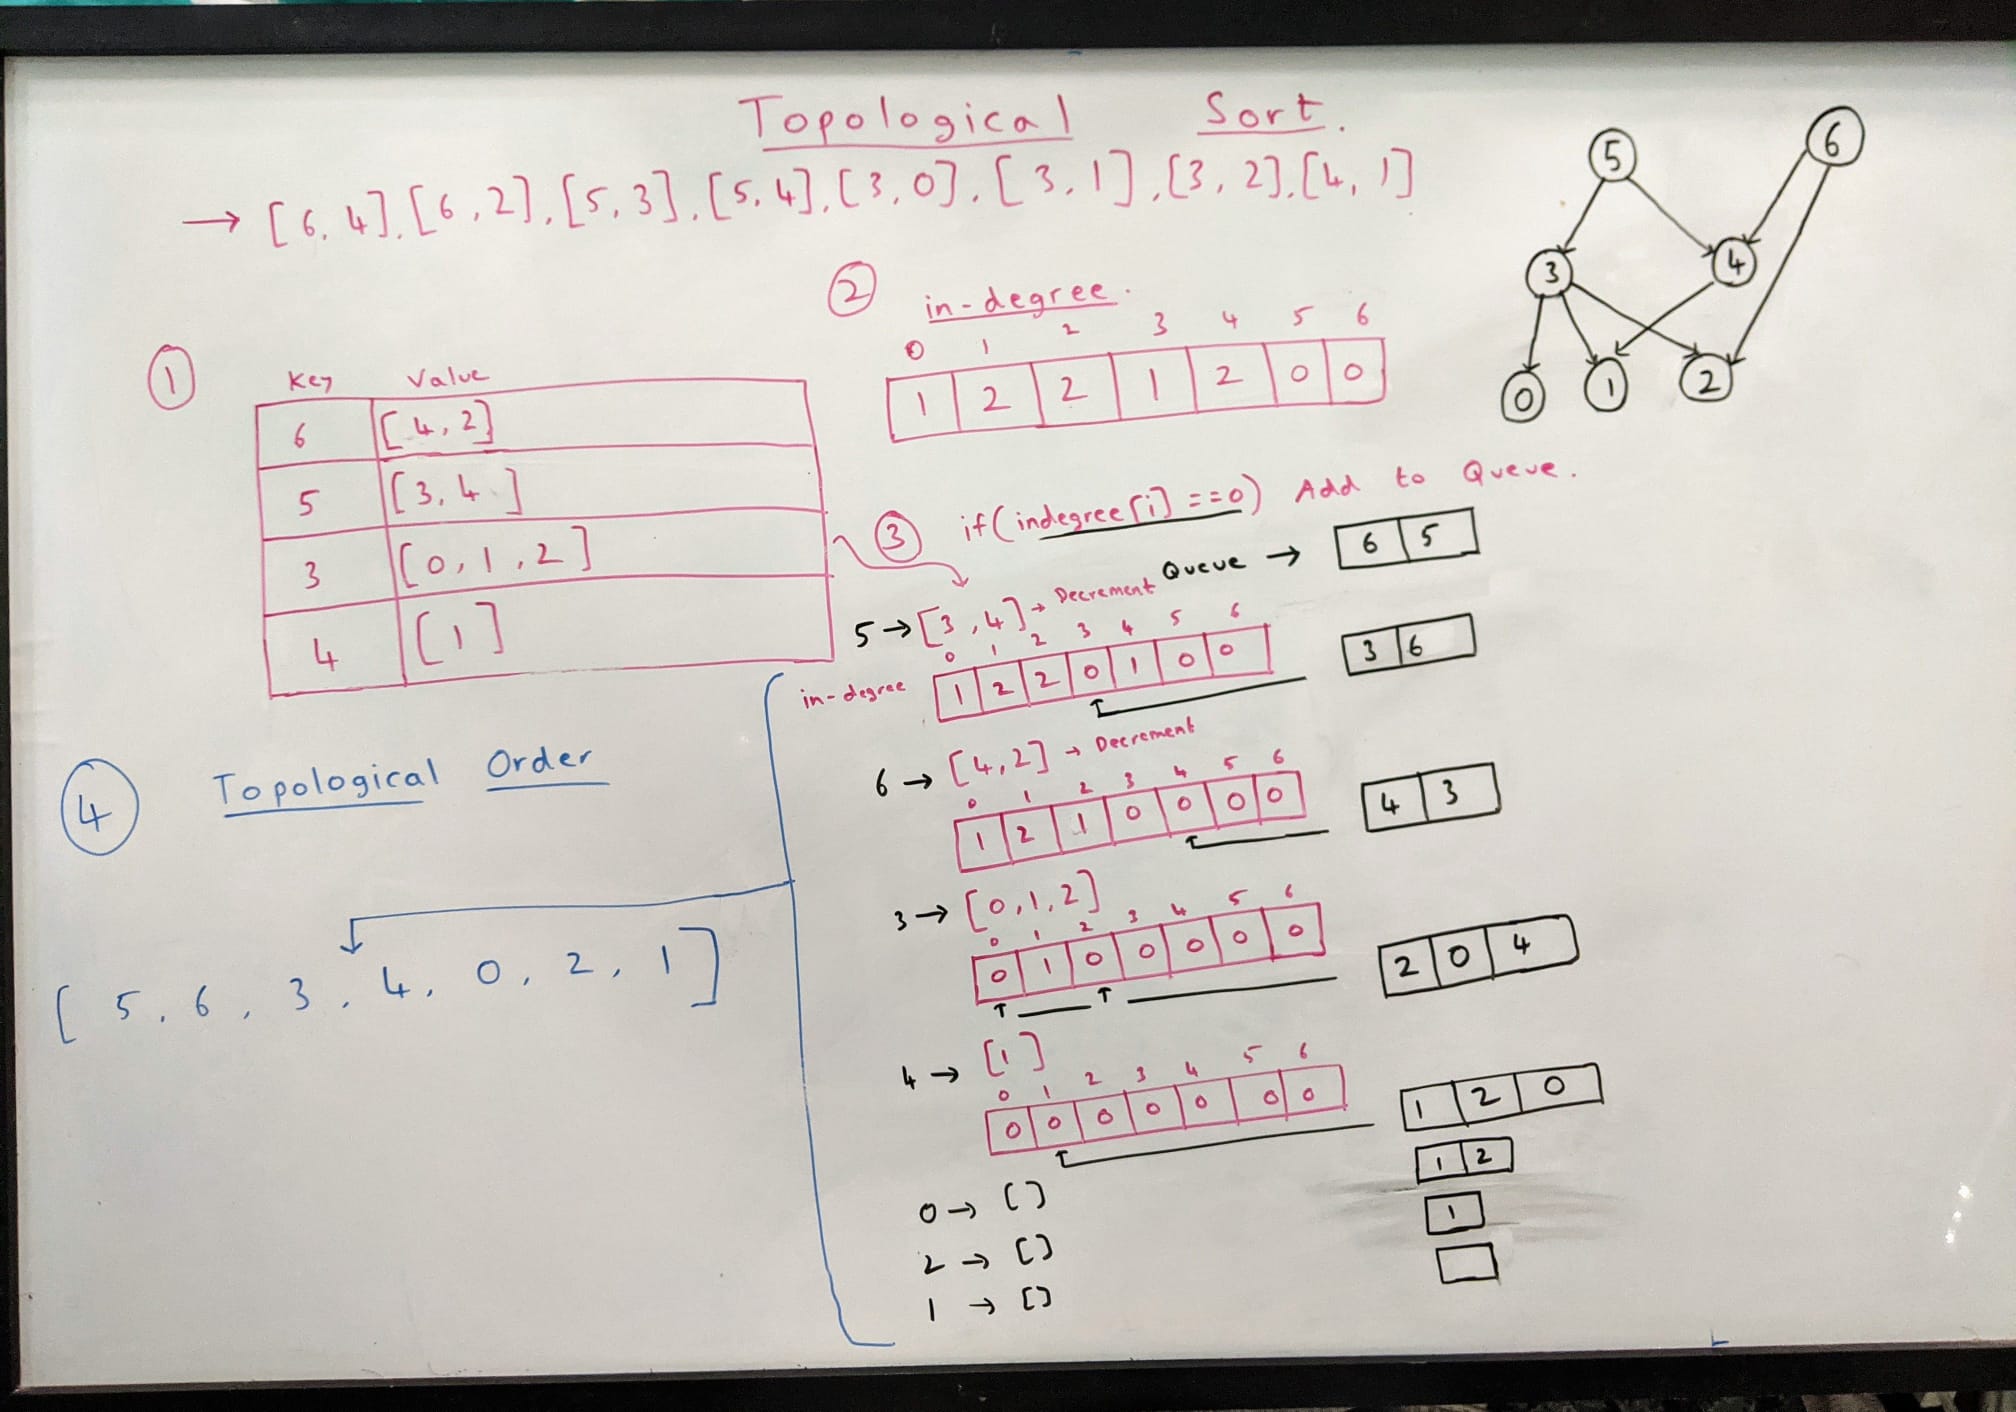 Topological Sort.
→ [6, 4], [6, 2], [5, 3], [5, 4], [3, 0], [3, 1], [3, 2], [4, 1]
5 6
3 4
0 1 2
① Key Value
6 [4, 2]
5 [3, 4]
3 [0, 1, 2]
4 [1]
② in-degree.
0 1 2 3 4 5 6
1 2 2 1 2 0 0
③ if(indegree[i] ==0) Add to Queue.
Queue → 6 5
5 → [3, 4] → Decrement
0 1 2 3 4 5 6
in-degree 1 2 2 0 1 0 0
3 6
6 → [4, 2] → Decrement
0 1 2 3 4 5 6
1 2 1 0 0 0 0
4 3
3 → [0, 1, 2]
0 1 2 3 4 5 6
0 1 0 0 0 0 0
2 0 4
4 → [1]
0 1 2 3 4 5 6
0 0 0 0 0 0 0
1 2 0
0 → []
1 2
2 → []
1
1 → []
④ Topological Order
[5, 6, 3, 4, 0, 2, 1]